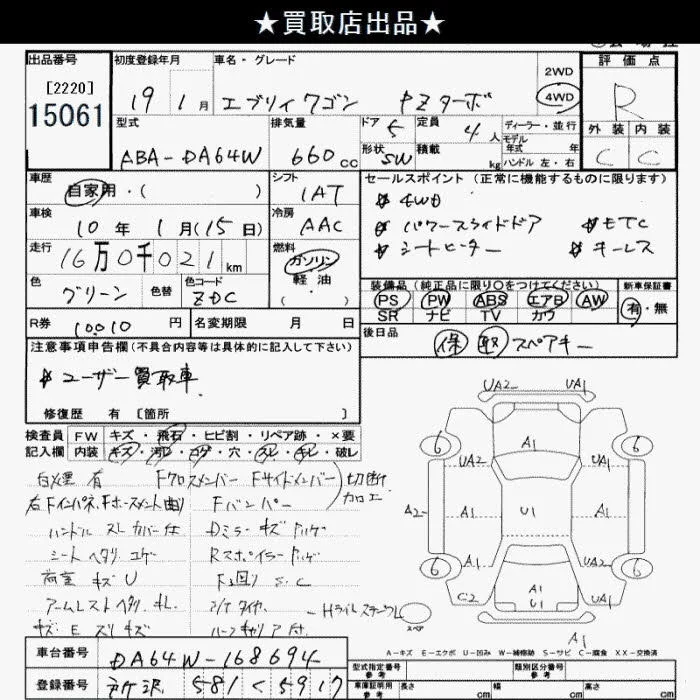 ★買取店出品★
出品番号 初度登録年月 車名・グレード 評価点
[2220]
15061 19 1月 エブリィワゴン PZターボ 2WD 4WD R
型式 排気量 ドア 5 定員 4人 ディーラー・並行 外装 内装
モデル年式 年
ABA-DA64W 660cc 形状 SW 積載 kg ハンドル 左・右 C C
車歴 シフト セールスポイント(正常に機能するものに限ります)
自家用・( ) 1AT 4WD
車検 冷房
10年 1月(15日) AAC パワースライドドア ETC
走行 燃料 シートヒーター キーレス
16万0千021km ガソリン
軽油
( )
色 色替 色コード 装備品(純正品に限り○をつけてください) 新車保証書
グリーン ZDC PS PW ABS エアB AW 有・無
SR ナビ TV カワ
R券 10010円 名変期限 月 日 後日品
保 取 スペアキー
注意事項申告欄(不具合内容等は具体的に記入して下さい)
ユーザー買取車
修復歴 有 [箇所 ]
検査員 FW キズ・飛石・ヒビ割・リペア跡・×要
記入欄 内装 キズ・汚レ・コゲ・穴・スレ・キレ・破レ
Fクロスメンバー Fサイドメンバー 切断
加工
Fバンパー
ハンドル スレ カバー付
Dミラー キズ
シート ヘタリ コゲ
Rスポイラー
荷室 キズ U
F下回り S.C
アームレスト
キズ E スリキズ
UA2 UA1
A1
6 6
UA2 UA1
A2 A1 U1 A1
A1 UA2
6 6
C2 A1 UA1
U1
スペア
A1
A-キズ E-エクボ U-凹み W-補修跡 S-サビ C-腐食 XX-交換済
車台番号 DA64W-168694 型式指定番号 類別区分番号
参考 参考
登録番号 所沢 581 く 5917 車庫証明用 長さ cm 幅 cm 高さ cm
参考